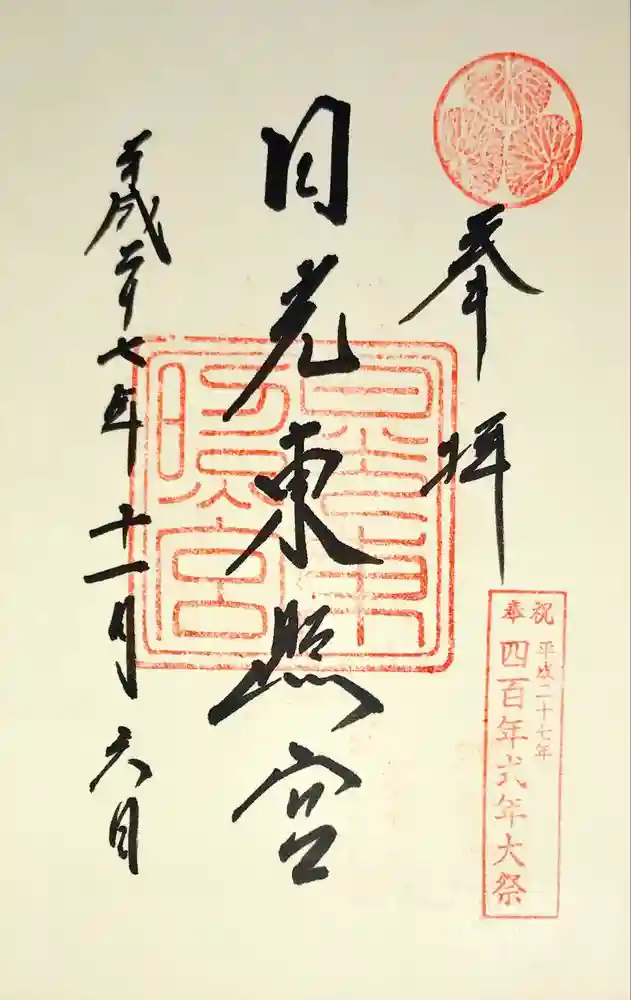 奉拝
奉祝
平成二十七年
四百年式年大祭
日光東照宮
平成二十七年十一月六日